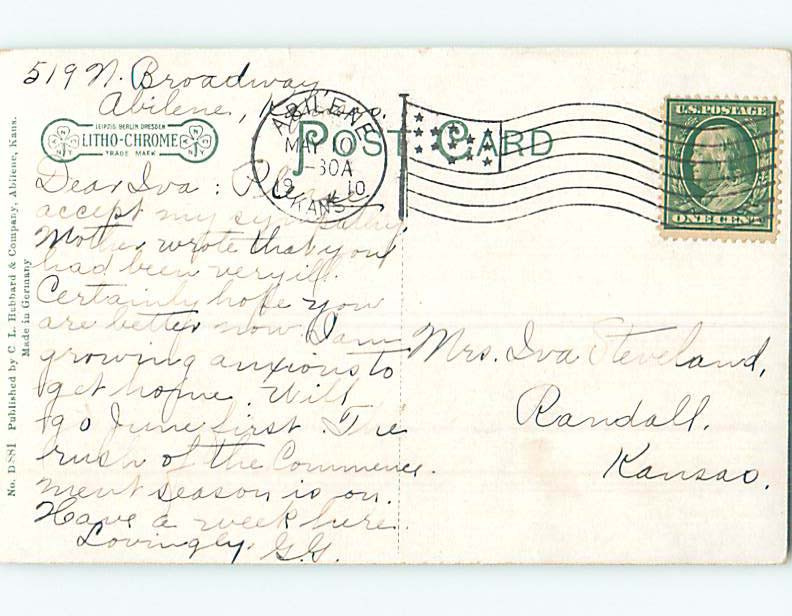 519 N. Broadway
Abilene, Kans.
LEIPZIG BERLIN DRESDEN
LITHO-CHROME
TRADE MARK
POST CARD
ABILENE
MAY 10
30A
1910
KANS.
U.S. POSTAGE
ONE CENT
Dear Iva: Please
accept my sympathy.
Mother wrote that you
had been very ill.
Certainly hope you
are better now. I am
growing anxious to
get home. Will
go June first. The
rush of the Commence-
ment season is on.
Have a week here.
Lovingly, G.G.
Mrs. Iva Steveland,
Randall.
Kansas.
No. D881 Published by C. L. Hubbard & Company, Abilene, Kans.
Made in Germany